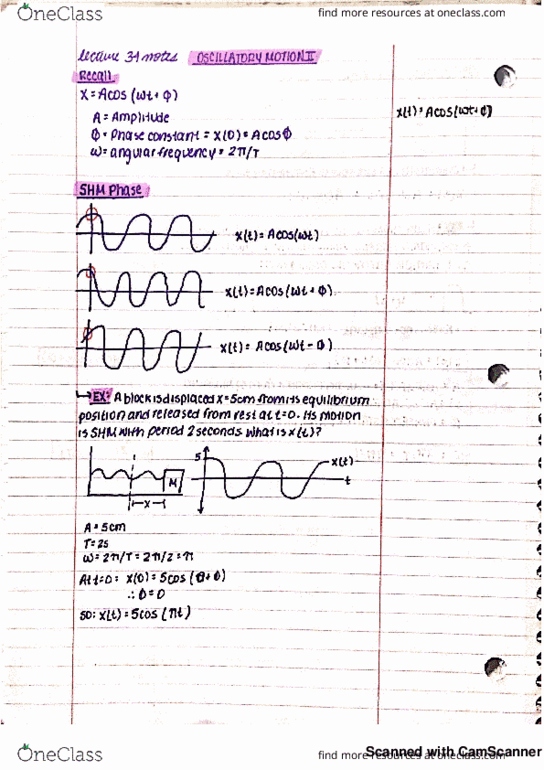 OneClass
find more resources at oneclass.com
lecture 31 notes OSCILLATORY MOTION II
Recall:
X = Acos (ωt + φ)
x(t) = Acos(ωt+φ)
A = Amplitude
φ = Phase constant = x(0) = Acosφ
ω = angular frequency = 2π/T
SHM Phase
x(t) = Acos(ωt)
x(t) = Acos(ωt + φ)
x(t) = Acos(ωt - φ)
↳ EX: A block is displaced x = 5cm from its equilibrium
position and released from rest at t=0. Its motion
is SHM with period 2 seconds what is x(t)?
M
x
5
x(t)
t
A = 5cm
T = 2s
ω = 2π/T = 2π/2 = π
At t=0: x(0) = 5cos (0+φ)
∴ φ = 0
so: x(t) = 5cos (πt)
OneClass
find more resources at oneclass.com
Scanned with CamScanner